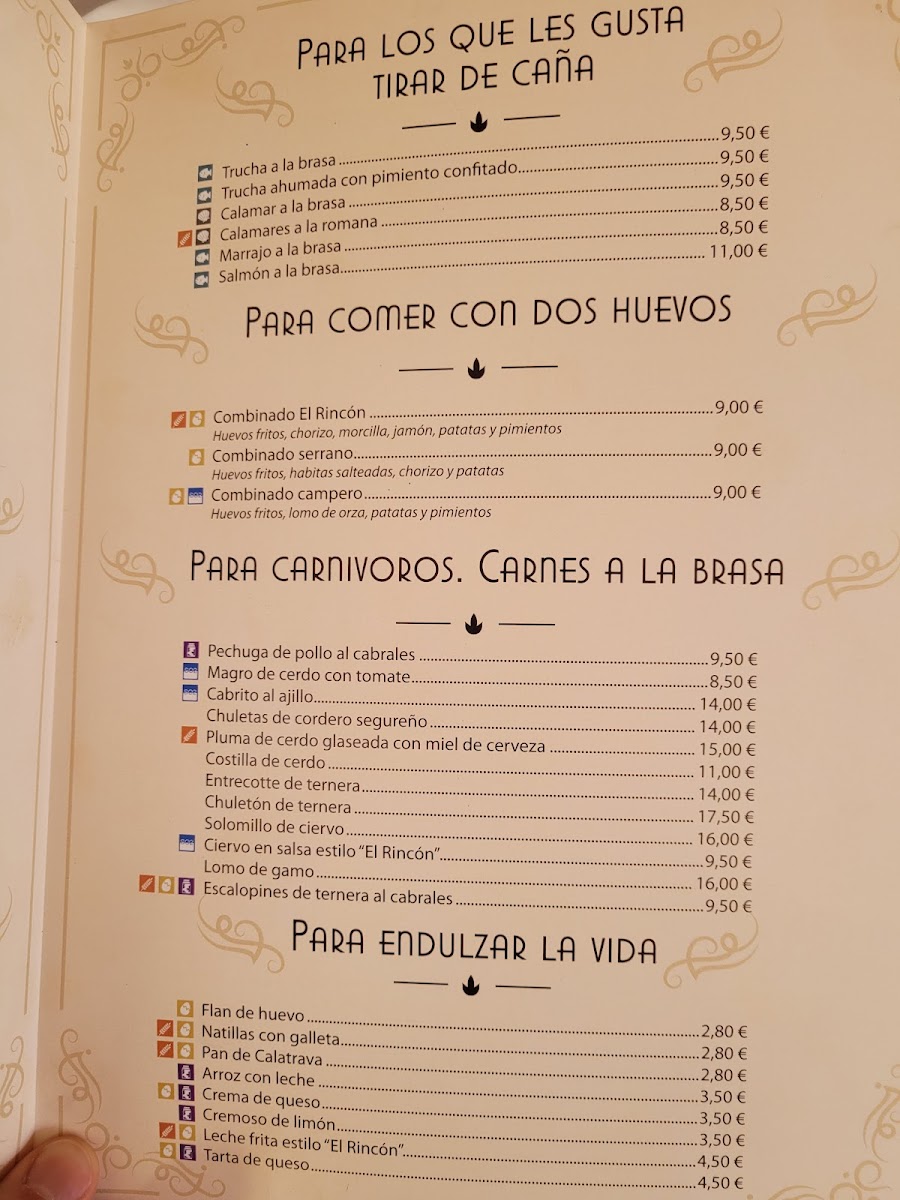 Para los que les gusta
tirar de caña
Trucha a la brasa ........ 9,50 €
Trucha ahumada con pimiento confitado ........ 9,50 €
Calamar a la brasa ........ 9,50 €
Calamares a la romana ........ 8,50 €
Marrajo a la brasa ........ 8,50 €
Salmón a la brasa ........ 11,00 €
Para comer con dos huevos
Combinado El Rincón ........ 9,00 €
Huevos fritos, chorizo, morcilla, jamón, patatas y pimientos
Combinado serrano ........ 9,00 €
Huevos fritos, habitas salteadas, chorizo y patatas
Combinado campero ........ 9,00 €
Huevos fritos, lomo de orza, patatas y pimientos
Para carnivoros. Carnes a la brasa
Pechuga de pollo al cabrales ........ 9,50 €
Magro de cerdo con tomate ........ 8,50 €
Cabrito al ajillo ........ 14,00 €
Chuletas de cordero segureño ........ 14,00 €
Pluma de cerdo glaseada con miel de cerveza ........ 15,00 €
Costilla de cerdo ........ 11,00 €
Entrecotte de ternera ........ 14,00 €
Chuletón de ternera ........ 17,50 €
Solomillo de ciervo ........ 16,00 €
Ciervo en salsa estilo “El Rincón” ........ 9,50 €
Lomo de gamo ........ 16,00 €
Escalopines de ternera al cabrales ........ 9,50 €
Para endulzar la vida
Flan de huevo ........ 2,80 €
Natillas con galleta ........ 2,80 €
Pan de Calatrava ........ 2,80 €
Arroz con leche ........ 3,50 €
Crema de queso ........ 3,50 €
Cremoso de limón ........ 3,50 €
Leche frita estilo “El Rincón” ........ 4,50 €
Tarta de queso ........ 4,50 €